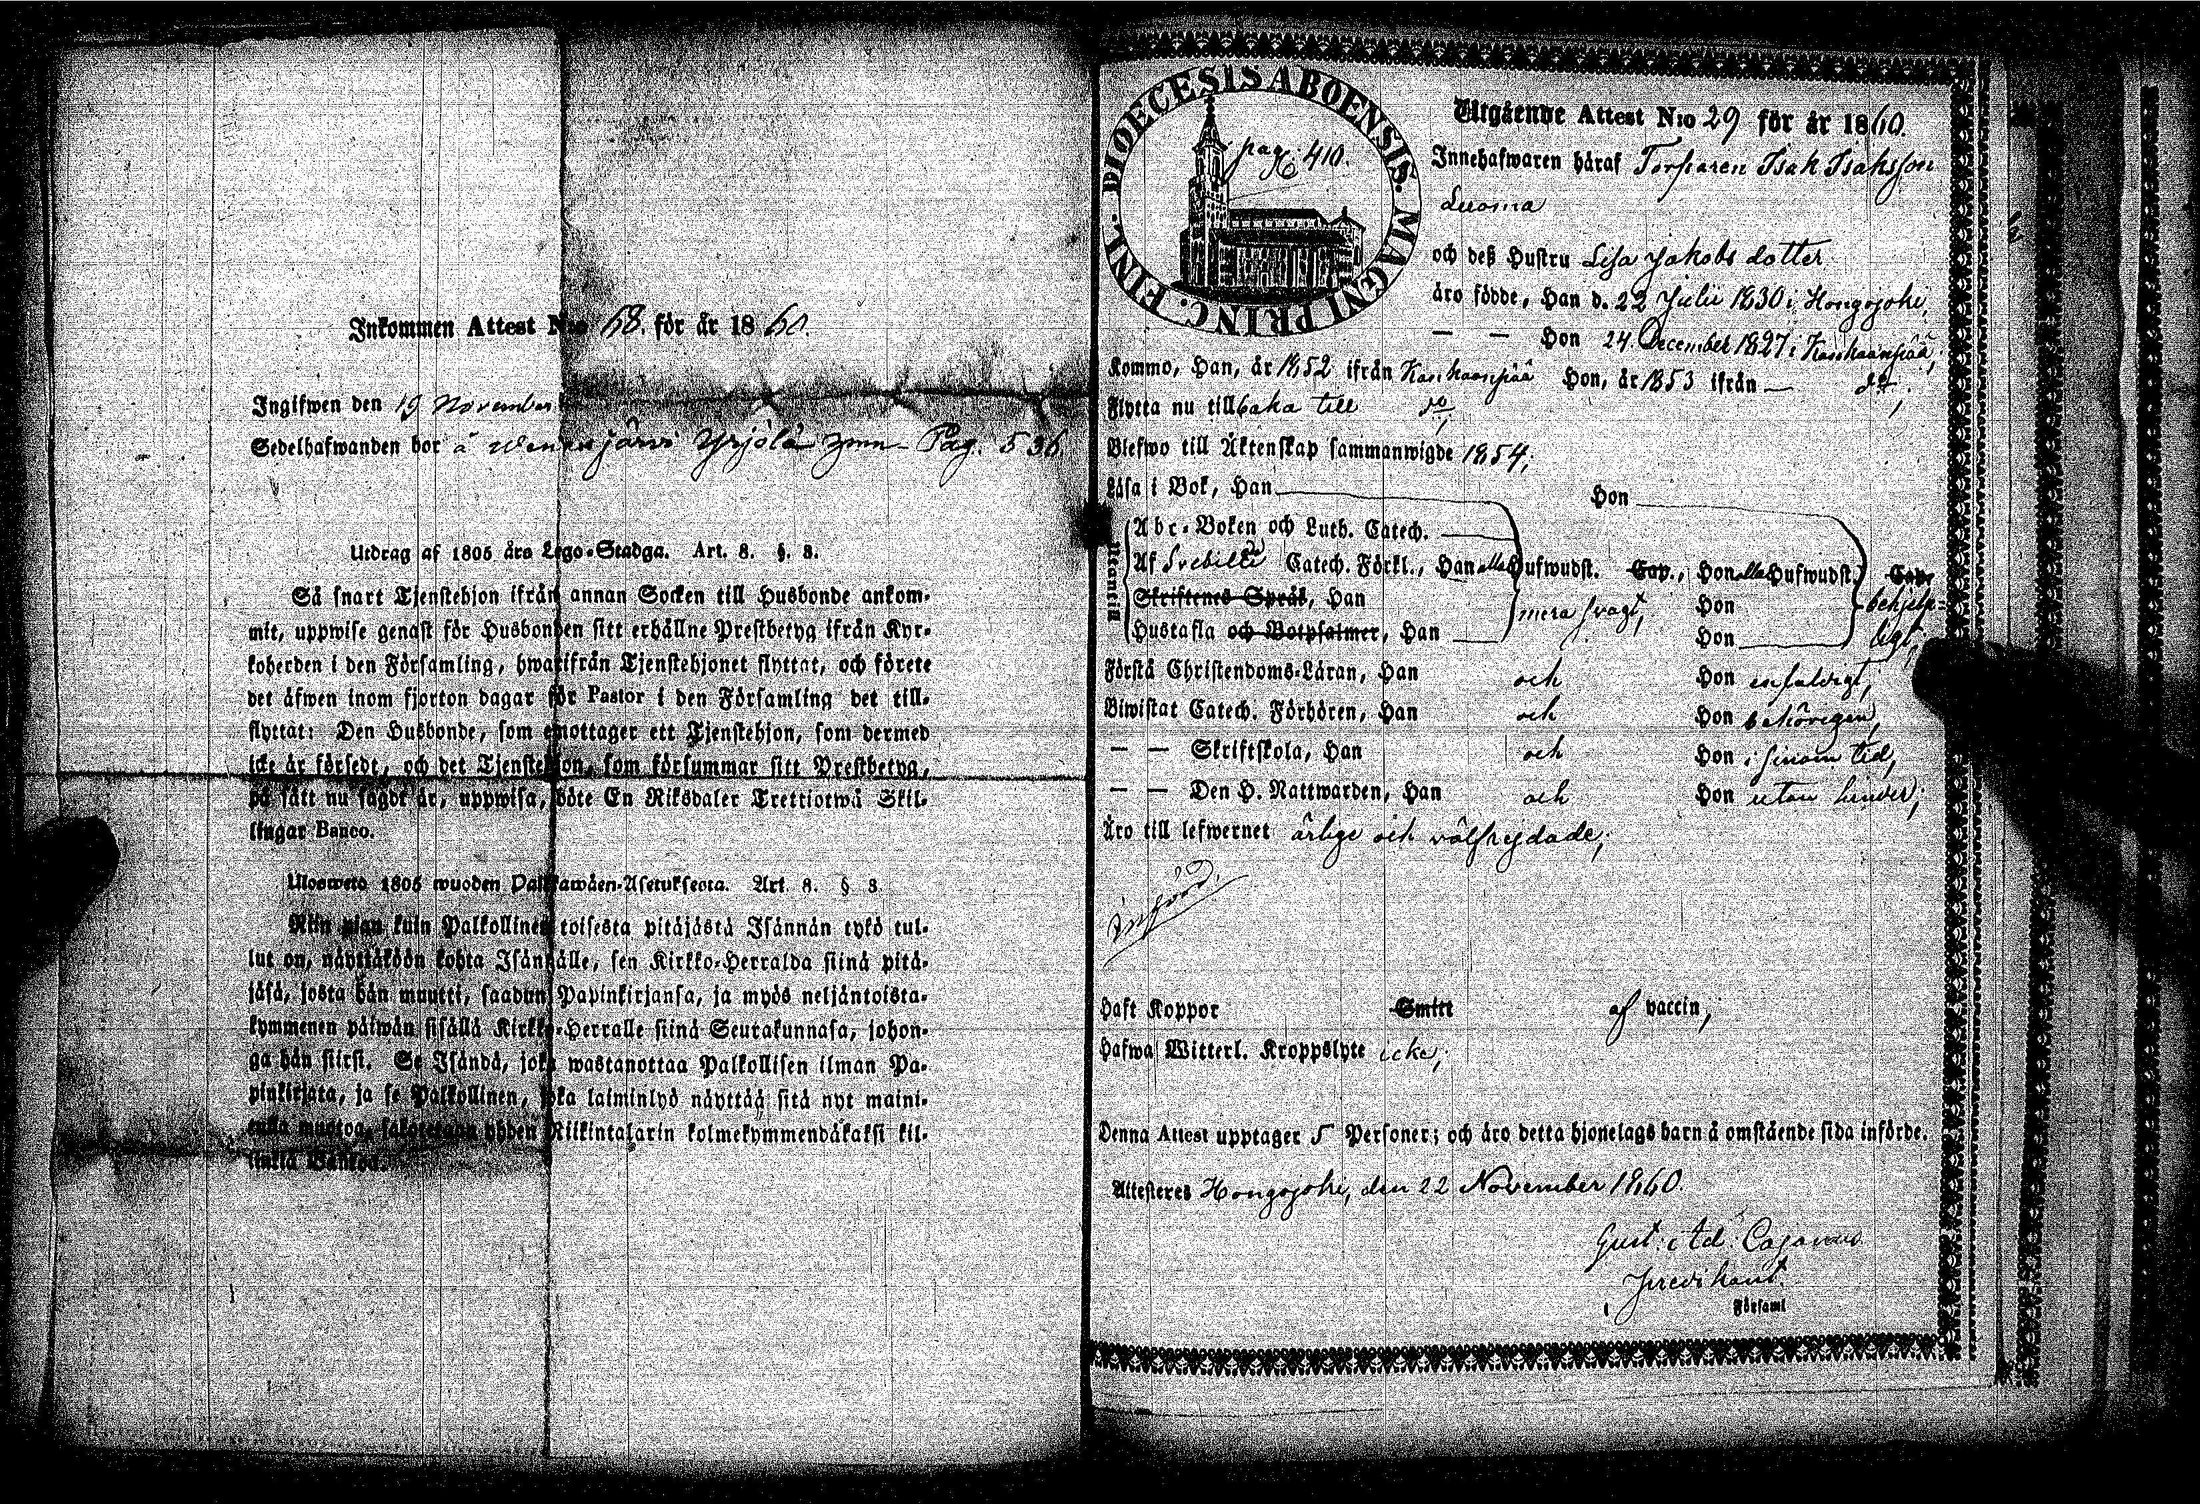 Inkommen Attest N:o 68. för år 1860.
Ingifwen den 19 November
Sedelhafwanden bor å Wenesjärvi Yrjölä Pag. 536
Utdrag af 1805 års Lego-Stadga. Art. 8. §. 8.
Så snart Tjenstehjon ifrån annan Socken till Husbonde ankom-
mit, uppwise genast för Husbonden sitt erhållne Prestbetyg ifrån Kyr-
koherden i den Församling, hwarifrån Tjenstehjonet flyttat, och förete
det äfwen inom fjorton dagar för Pastor i den Församling det till-
flyttat: Den Husbonde, som emottager ett Tjenstehjon, som dermed
icke är försedt, och det Tjenstehjon, som försummar sitt Prestbetyg,
på sätt nu sagdt är, uppwisa, böte En Riksdaler Trettiotwå Skil-
lingar Banco.
Ulosweto 1805 wuoden Palkkawäen-Asetuksesta. Art. 8. § 8
Niin pian kuin Palkollinen toisesta pitäjästä Isännän tykö tul-
lut on, näyttäköön kohta Isännälle, sen Kirkko-Herralda siinä pitä-
jäsä, josta hän muutti, saadun Papinkirjansa, ja myös neljäntoista-
kymmenen päiwän sisällä Kirkko-Herralle siinä Seurakunnasa, johon-
ga hän siirsi. Se Isändä, joka wastanottaa Palkollisen ilman Pa-
pinkirjata, ja se Palkollinen, joka laiminlyö näyttää sitä nyt maini-
tulla muotoa, sakotetaan yhden Riikintalarin kolmekymmendäkaksi kil-
lingiä Bankoa.
DIOECESIS ABOENSIS. MAGNI PRINC. FINL.
pag. 410.
Utgående Attest N:o 29 för år 1860.
Innehafwaren häraf Torparen Isak Isaksson
Luoma
och deß Hustru Lisa Jakobs dotter
äro födde, Han d. 22 Julii 1830 i Hongojoki,
— — Hon 24 December 1827 i Kankaanpää,
Kommo, Han, år 1852 ifrån Kankaanpää Hon, år 1853 ifrån — do,
Flytta nu tillbaka till do,
Blefwo till Äktenskap sammanwigde 1854,
Läsa i Bok, Han Hon
Utantill
Abc-Boken och Luth. Catech.
Af Svebilii Catech. Förkl., Han alla Hufwudst. Cap., Hon alla Hufwudst. Cap.
Skriftenes Språk, Han mera svagt, Hon behjelp-
Hustafla och Botpsalmer, Han Hon ligt,
Förstå Christendoms-Läran, Han och Hon enfaldigt,
Biwistat Catech. Förhören, Han och Hon behörigen,
— — Skriftskola, Han och Hon i sinom tid,
— — Den H. Nattwarden, Han och Hon utan hinder,
Äro till lefwernet ärlige och välfrejdade,
Införd.
Haft Koppor Smitt af vaccin,
Hafwa Witterl. Kroppslyte icke,
Denna Attest upptager 5 Personer; och äro detta hjonelags barn å omstående sida införde.
Attesteres Hongojoki, den 22 November 1860.
Gust. Ad. Cajanus
predikant.
Församl